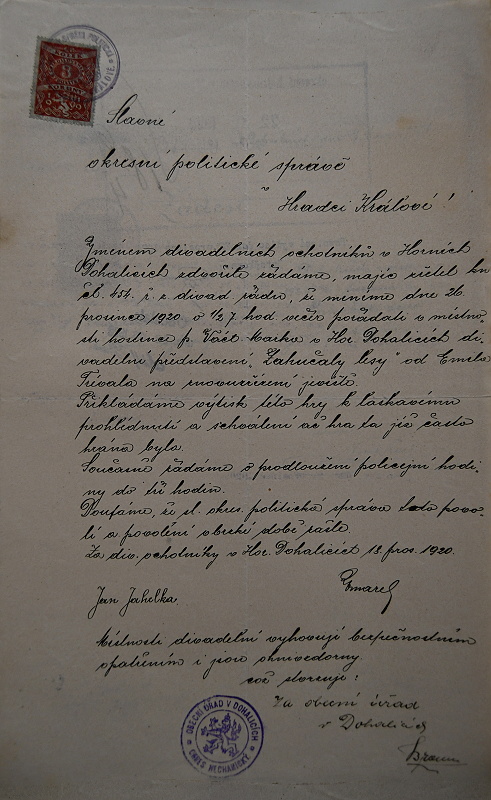 KOLEK
3
KORUNY
Slavné
okresní politické správě
v
Hradci Králové!
Jménem divadelních ochotníků v Horních
Dohalicích zdvořile žádám, majíc zřetel ku
čl. 454. ř. z. divad. řádu, že míníme dne 26.
prosince 1920 o ½ 7. hod. večer pořádati v místno-
sti hostince p. Václ. Maška v Hor. Dohalicích di-
vadelní představení „Zahučaly lesy" od Emila
Trevala na znovuzřízení jeviště.
Přikládáme výtisk této hry k laskavému
prohlédnutí a schválení ač hra ta již často
hrána byla.
Současně žádáme o prodloužení policejní hodi-
ny do tří hodin.
Doufáme, že sl. okres. politická správa toto povo-
lí a povolení v brzké době zašle
Za div. ochotníky v Hor. Dohalicích 18. pros. 1920.
Jan Jahelka
Místnosti divadelní vyhovují bezpečnostním
opatřením i jsou ohnivzdorny
což stvrzuje:
Za obecní úřad
v Dohalicích
OBECNÍ ÚŘAD V DOHALICÍCH